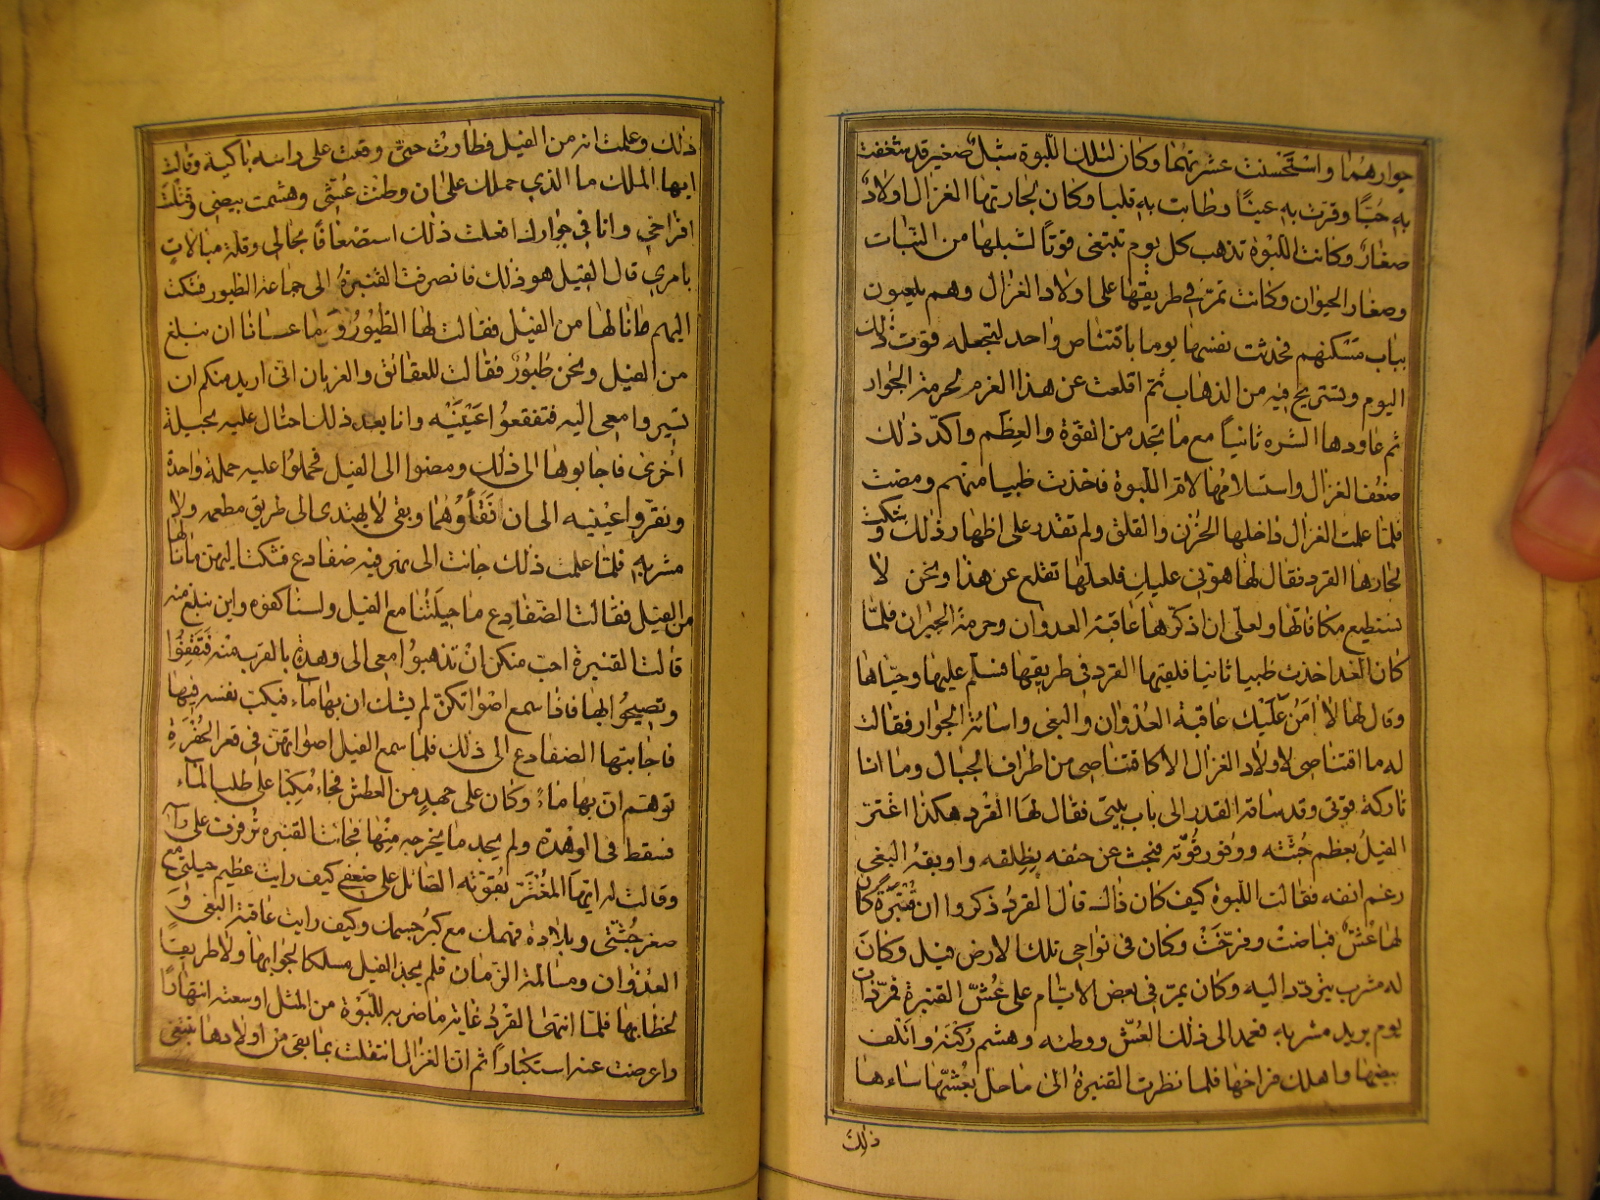 جوارهُما واستَحْسنت عشرتهما وكان لتلك اللّبوة شبلٌ صغير قد شغفت
به حُبّا وقرّت به عينًا وطابت به قلبا وكان لجارتها الغزال اولادٌ
صغارٌ وكانت اللّبوة تذهب كل يوم تبتغى قوتًا لشبلها من النبات
وصغار الحيوان وكانت تمرّ فى طريقها على اولاد الغزال وهم يلعبون
بباب مَسْكنهم فحدثت نفسها يوما باقتناص واحد لتجعله قوت ذلك
اليوم وتستريح فيه من الذهاب ثمّ اقلعت عن هذا العزم لحرمة الجوار
ثم عاودها الشره ثانياً مع ما تجد من القوّة والعِظَم واكّد ذلك
ضعْف الغزال واستسلامُها لامر اللّبوة فاخذت ظبيا منهم ومضت
فلمّا علمت الغزال داخلها الحُزن والقلق ولم تقدر على اظهار ذلك وشكت
لجارها القرد فقال لها هوّنى عليكِ فلعلّها تقلع عن هذا ونحن لا
نستطيع مكافاتها ولعلّى ان اذكّرها عاقبة العدوان وحرمة الجيران فلمّا
كان الغد اخذت ظبيا ثانيا فلقيها القرد فى طريقها فسلّم عليها وحيّاها
وقال لها لا آمَنُ عَلَيْك عاقبة العُدْوان والبغى واسائة الجوار فقالت
له ما اقتناصى لاولاد الغزال الا كاقتناصى من اطراف الجبال وما انا
تاركة قوتى وقد ساقه القدر الى باب بيتى فقال لها القرد هكذا اغترّ
الفيلُ بعظم جُثّته ووفور قُوّته فبحث عن حتفه بِظِلفه واوبقهُ البغى
رغم انفه فقالت اللّبوة كيف كان ذلك قال القردُ ذكروا ان قُنْبَرة كان
لها عُشّ فباضتْ وفرّخَتْ وكان فى نواحى تلك الارض فيل وكان
له مشرب يتردّد اليه وكان يمرّ فى بعض الايّام على عُشّ القنبرة فمرّ ذات
يوم يريد مشربه فعمد الى ذلك العُشّ ووطئه وهشم رُكْنَهُ واتْلف
بيضها واهلك فراخها فلما نظرت القنبرةُ الى ما حلّ بعُشّها ساءها
ذلِكَ
ذلك وعلمت انه من الفيل فطارتْ حتىّ وقعت على راسه باكية وقالت
ايها الملك ما الذي حملك على ان وطئت عُشّى وهشمت بيضى وقتلتَ
افراخى وانا فى جوارك افعلت ذلك استضعافًا بحالى وقلة مبالاتٍ
بامرى قال الفيل هو ذلك فانصرفت القنبرةُ الى جماعة الطيور فشكت
اليهم ما نالها من الفيل فقالت لها الطيُورُ وما عسانا ان نبلغ
من الفيل ونحن طيُورٌ فقالت للعقائق والغربان انى اريد منكم ان
تسيروا معى اليه فتفقعُوا عَيْنَيْه وانا بعد ذلك احتال عليه بحيلة
اُخرى فاجابوها الى ذلك ومضوا الى الفيل فحملوُا عليه حملة واحدة
ونقروا عينيه الى ان فَقَأُوهُما وبقى لا يهتدى الى طريق مطعمه ولا
مشربه فلمّا علمت ذلك جائت الى نهر فيه ضفادع فشكت اليهن ما نالها
من الفيل فقالت الضفادع ما حِيلَتُنا مع الفيل ولسنا كفوه واين نبلغ منه
قالت القنبرة احبّ منكن انْ تذهبوا معى الى وهدة بالقرب منه فَتَقِفُوا
وتصيحُوا بها فاذا سمع اصْواتكن لم يشك ان بها ماء فيكب نفسه فيها
فاجابتها الضفادع الى ذلك فلما سمع الفيل اصواتهن فى قعر الحُفْرَةِ
توهّم انّ بها ماءً وكان على جهدٍ من العطش فجاء مُكِبّا على طلب المآء
فسقط فى الوهْدة ولم يجد ما يخرجه مِنْها فجائت القنبره ترفرف على رأسه
وقالت له ايّها المُغْتَرّ بقُوّته الصّائل على ضعْفى كيف رايت عظيم حيلتى مع
صغر جُثّتى وبلادة فهمك مع كبرُ جسمك وكيف رايت عاقبة البغى و
العُدْوان ومسالمة الزّمان فلم يجد الفيل مسلكا لجوابها ولا طريقًا
لخطابها فلمّا انتهى القِرْدُ غاية ما ضربه للّبْوَة من المثل اوسعته انتهارًا
واعرضت عنه استكباراً ثم انّ الغزال انتقلت بما بقى من اولادها تبتغى